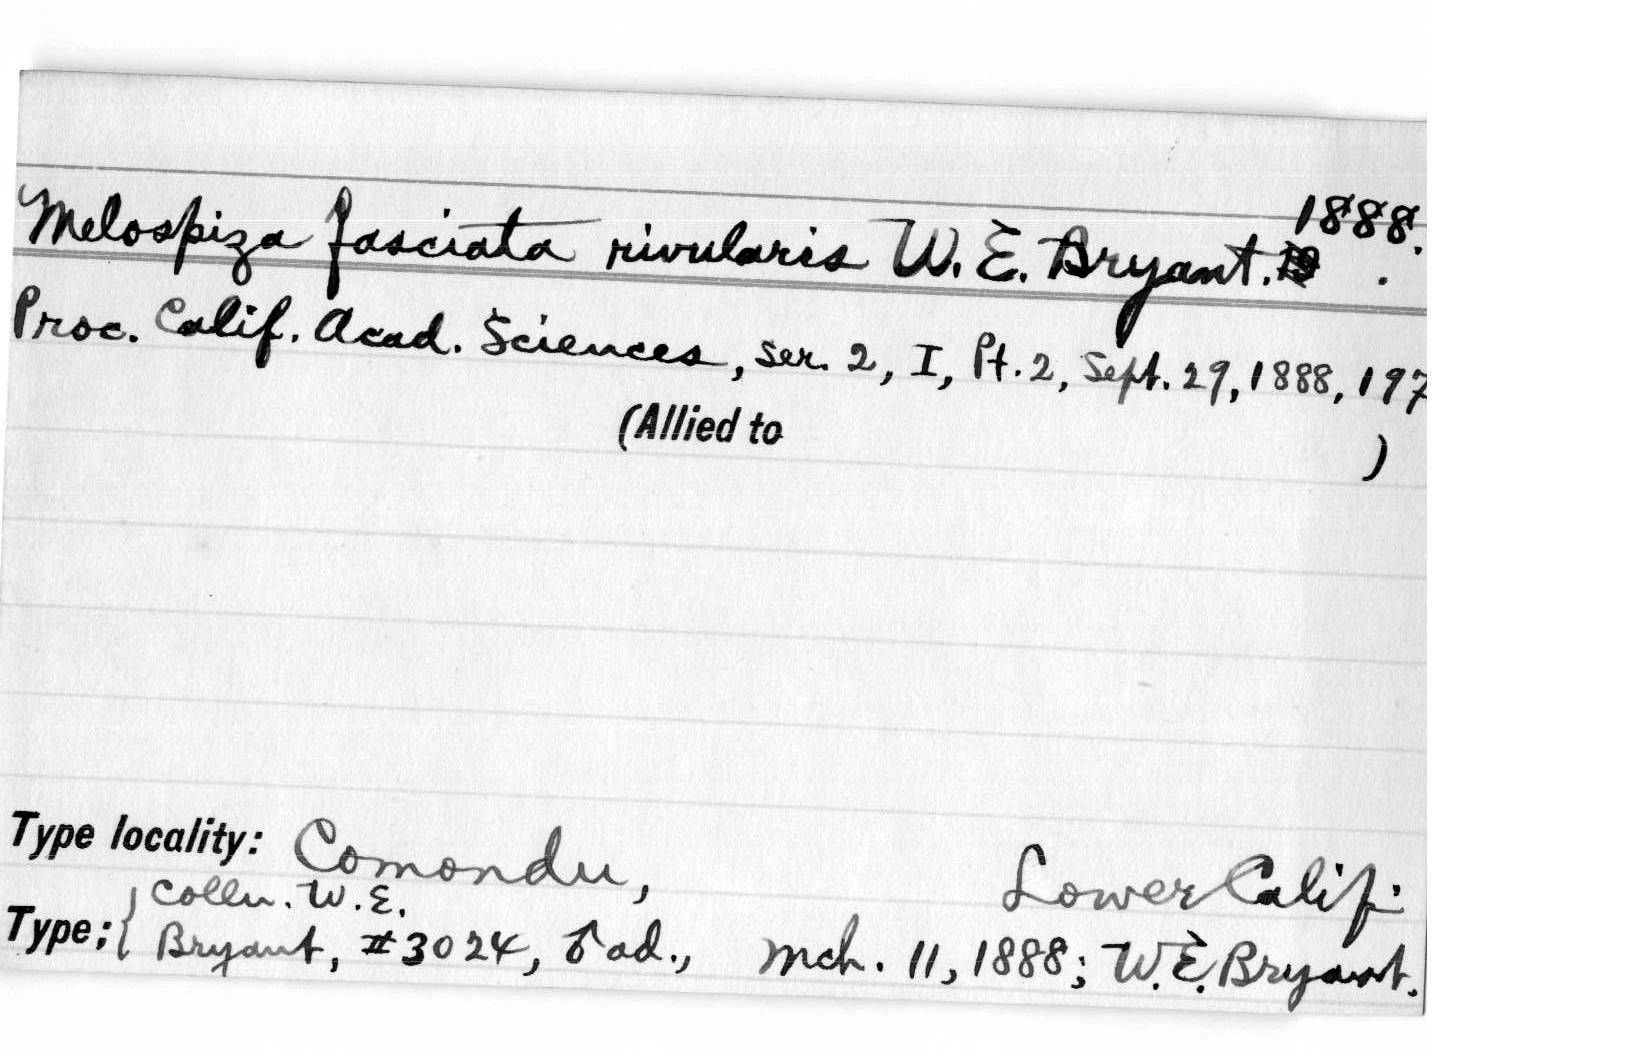 Melospiza fasciata rivularis W. E. Bryant. 1888.
Proc. Calif. Acad. Sciences, ser. 2, I, Pt. 2, Sept. 29, 1888, 197
(Allied to )
Type locality: Comondu, Lower Calif.
Type: { Colln. W. E.
Bryant, #3024, ♂ ad., Mch. 11, 1888; W. E. Bryant.